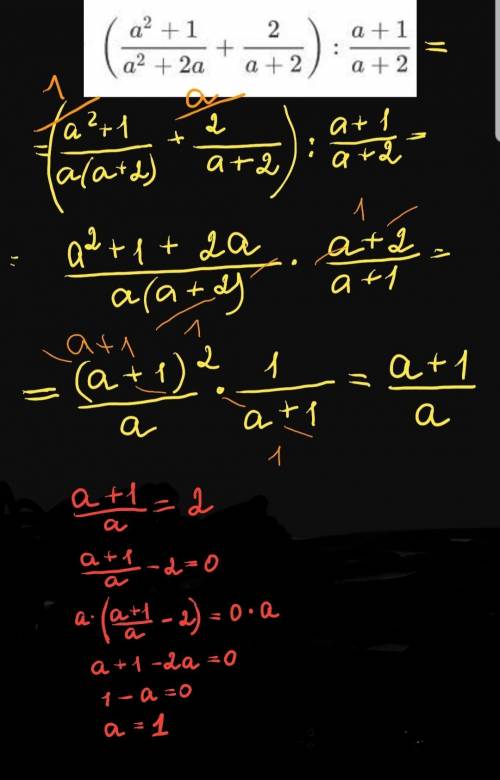 ( (a² + 1)/(a² + 2a) + 2/(a + 2) ) : (a + 1)/(a + 2) =
1 a
= ( (a² + 1)/(a(a + 2)) + 2/(a + 2) ) : (a + 1)/(a + 2) =
1
= (a² + 1 + 2a)/(a(a + 2)) · (a + 2)/(a + 1) =
1
a + 1
= (a + 1)²/a · 1/(a + 1) = (a + 1)/a
1
(a + 1)/a = 2
(a + 1)/a - 2 = 0
a · ((a + 1)/a - 2) = 0 · a
a + 1 - 2a = 0
1 - a = 0
a = 1